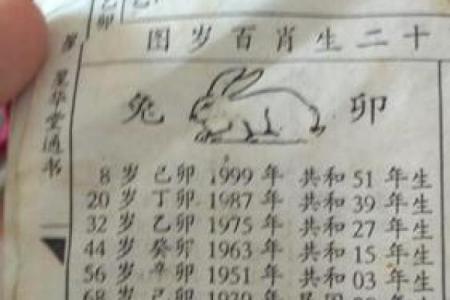 己卯
图岁百肖生二十
星华堂通书
兔 卯
8 岁 己卯 1999 年 共和 51 年生
20 岁 丁卯 1987 年 共和 39 年生
32 岁 乙卯 1975 年 共和 27 年生
44 岁 癸卯 1963 年 共和 15 年生
56 岁 辛卯 1951 年 共和 03 年生
68 岁 己卯 1939 年 民国